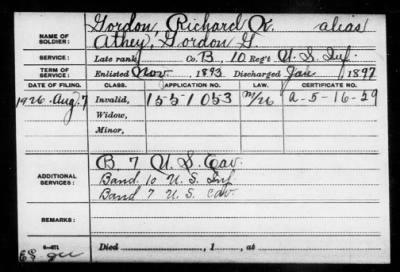 NAME OF SOLDIER: Gordon Richard K. alias
Athey, Gordon G.
SERVICE: Late rank, Co. B, 10 Reg't U.S. Inf.
TERM OF SERVICE: Enlisted Nov. 1893 Discharged Jan 1897
DATE OF FILING. CLASS. APPLICATION NO. LAW. CERTIFICATE NO.
1926 Aug. 7 Invalid, 1551053 a-5-16-29
Widow,
Minor,
ADDITIONAL SERVICES:
B. 7 U.S. Cav.
Band 10 U.S. Inf
Band 7 U.S. Cav.
REMARKS:
Died , 1 , at